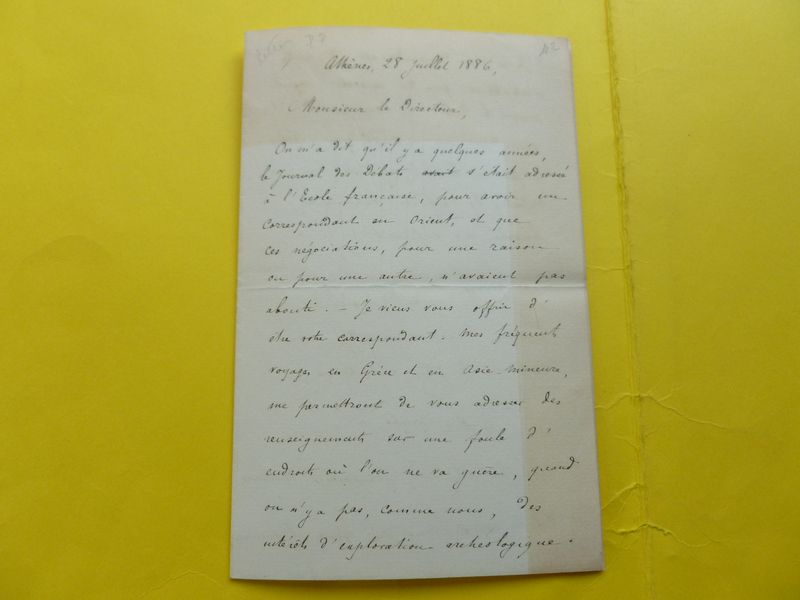 Athènes, 28 Juillet 1886,
Monsieur le Directeur,
On m'a dit qu'il y a quelques années,
le Journal des Débats avait s'était adressé
à l'Ecole française, pour avoir un
correspondant en Orient, et que
ces négociations, pour une raison
ou pour une autre, n'avaient pas
abouti. - Je viens vous offrir d'
être votre correspondant. Mes fréquents
voyages en Grèce et en Asie-Mineure,
me permettront de vous adresser des
renseignements sur une foule d'
endroits où l'on ne va guère, quand
on n'y a pas, comme nous, des
intérêts d'exploration archéologique.